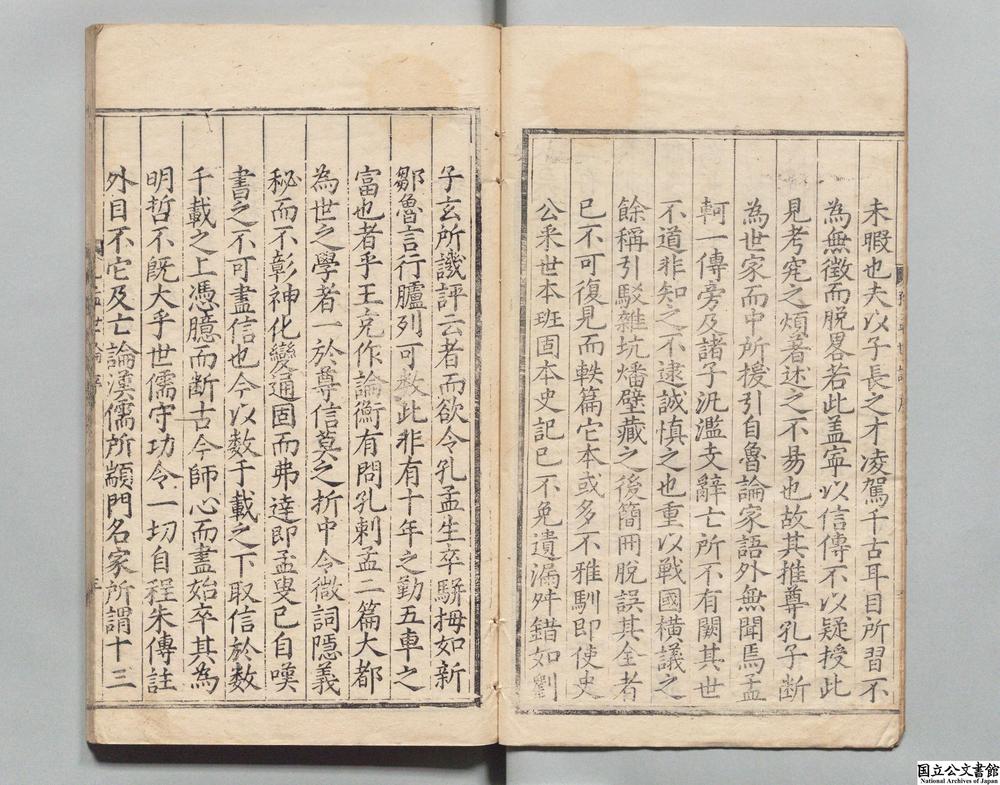 未暇也夫以子長之才凌駕千古耳目所習不
為無徵而脫畧若此盖寧以信傳不以疑授此
見考究之煩著述之不易也故其推尊孔子斷
為世家而中所援引自魯論家語外無聞焉孟
軻一傳旁及諸子汎濫支辭亡所不有闕其世
不道非知之不逮誠慎之也重以戰國橫議之
餘稱引駁雜坑燔壁藏之後簡冊脫誤其全者
已不可復見而軼篇它本或多不雅馴即使史
公釆世本班固本史記已不免遺漏舛錯如劉
子玄所譏評云者而欲令孔孟生卒駢拇如新
鄒魯言行臚列可数此非有十年之勤五車之
富也者乎王充作論衡有問孔刺孟二篇大都
為世之學者一於尊信莫之折中令微詞隱義
秘而不彰神化變通固而弗達即孟叟已自嘆
書之不可盡信也今以數千載之下取信於數
千載之上憑臆而斷古今師心而盡始卒其為
明哲不既大乎世儒守功令一切自程朱傳註
外目不它及亡論漢儒所顓門名家所謂十三
國立公文書館
National Archives of Japan